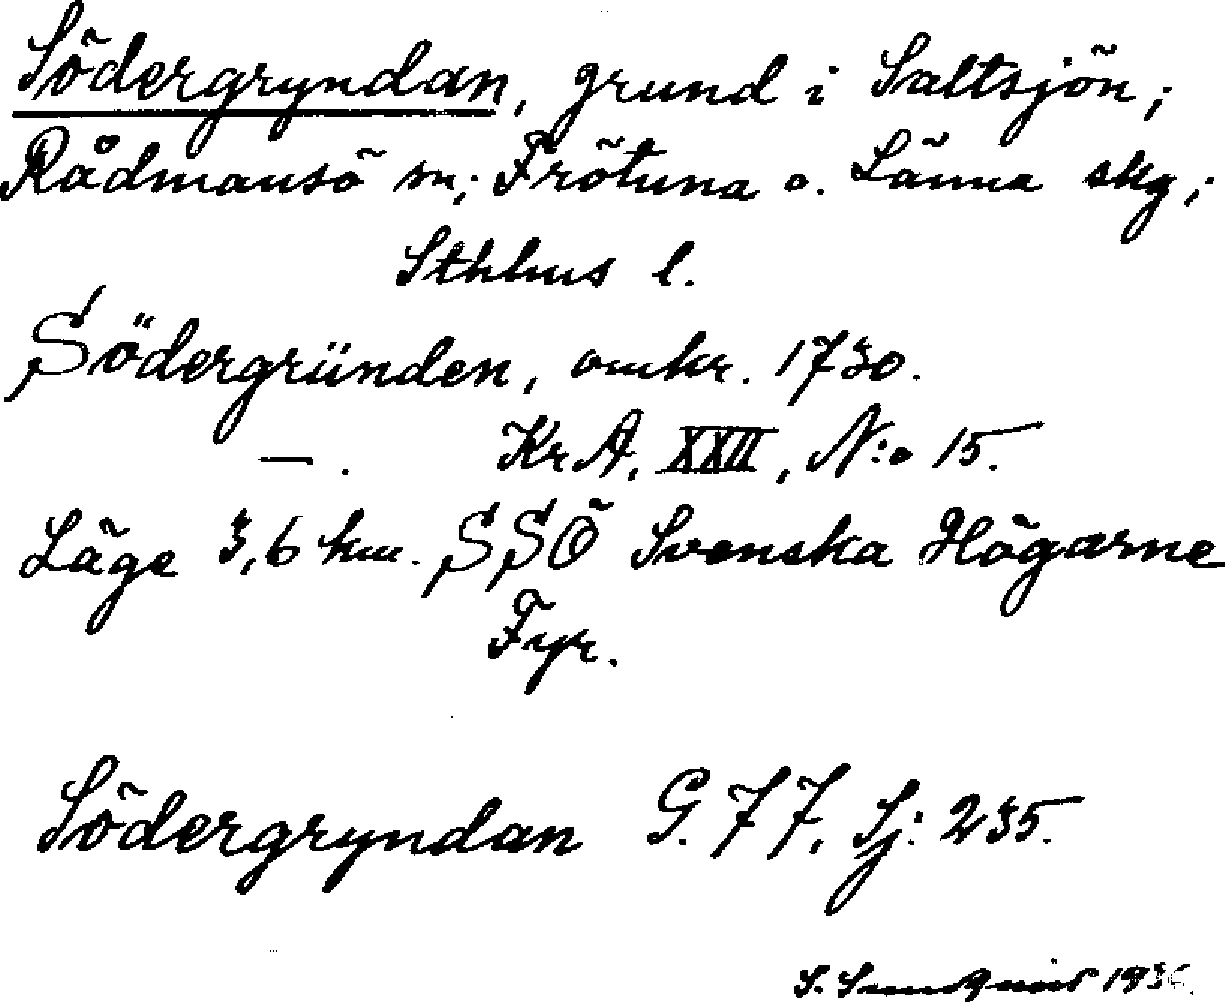 Södergryndan, grund i Saltsjön;
Rådmansö sn; Frötuna o. Länna skg;
Sthlms l.
Södergründen, omkr. 1730.
— . KrA, XXII, N:o 15.
Läge 3,6 km. SSÖ Svenska Högarne
Fyr.
Södergryndan G. 77. Sj: 235.
S. 1936.